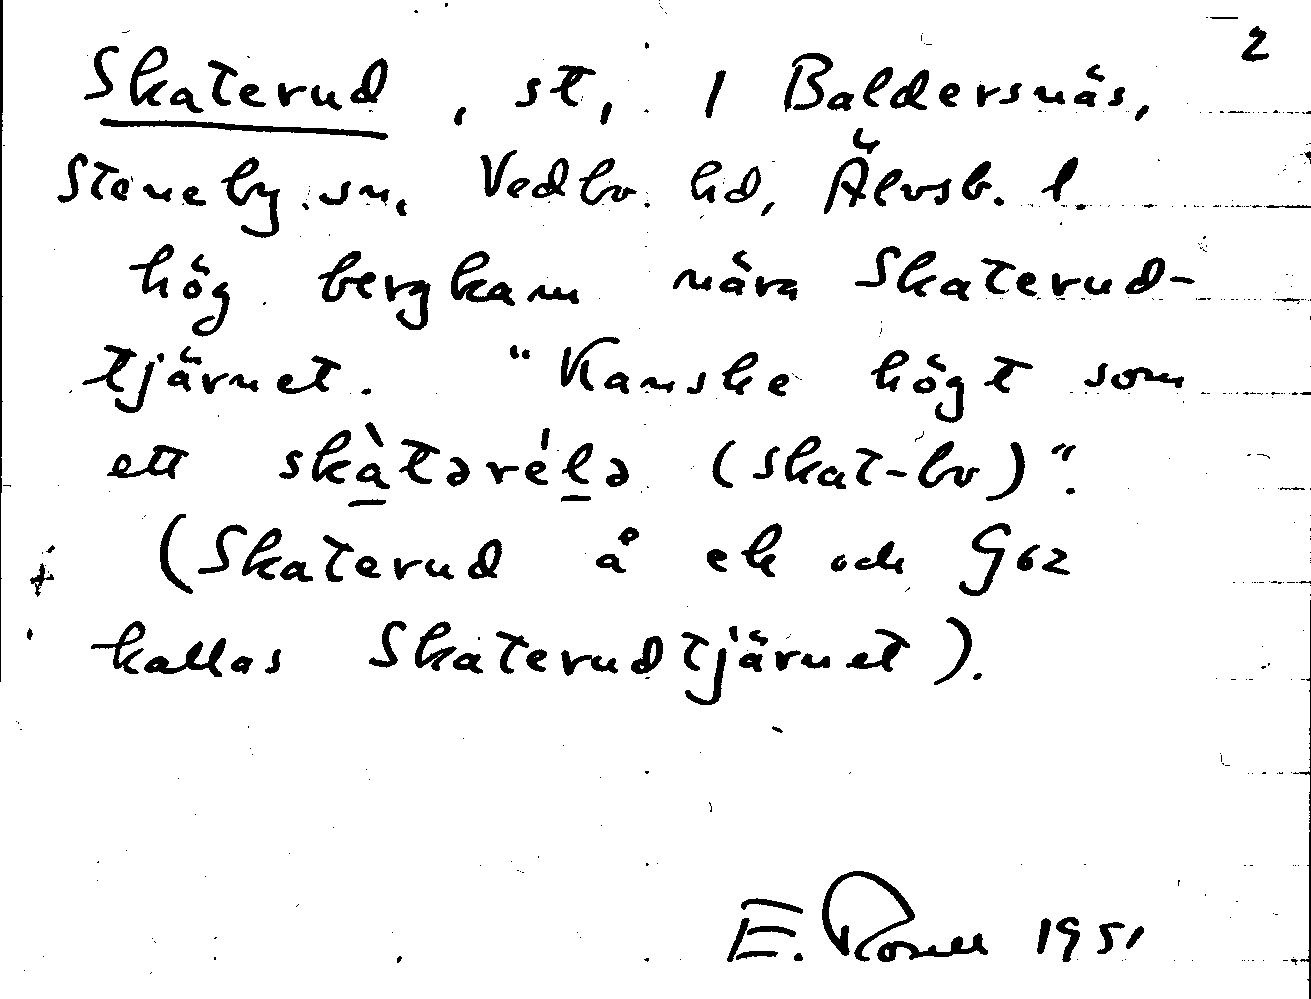 2
Skaterud, st, 1 Baldersnäs,
Steneby sn, Vedbo hd, Älvsb. l.
hög bergkam nära Skaterud-
tjärnet. "Kanske högt som
ett skàtəréłə (skat-bo)".
(Skaterud å ek och G62
kallas Skaterudtjärnet).
E. Rosell 1951